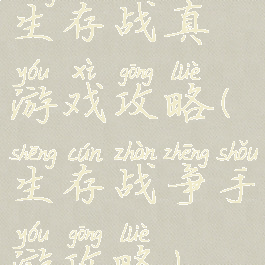 生存战真
yóu xì gōng lüè
游戏攻略(
shēng cún zhàn zhēng shǒu
生存战争手
yóu gōng lüè
游攻略)